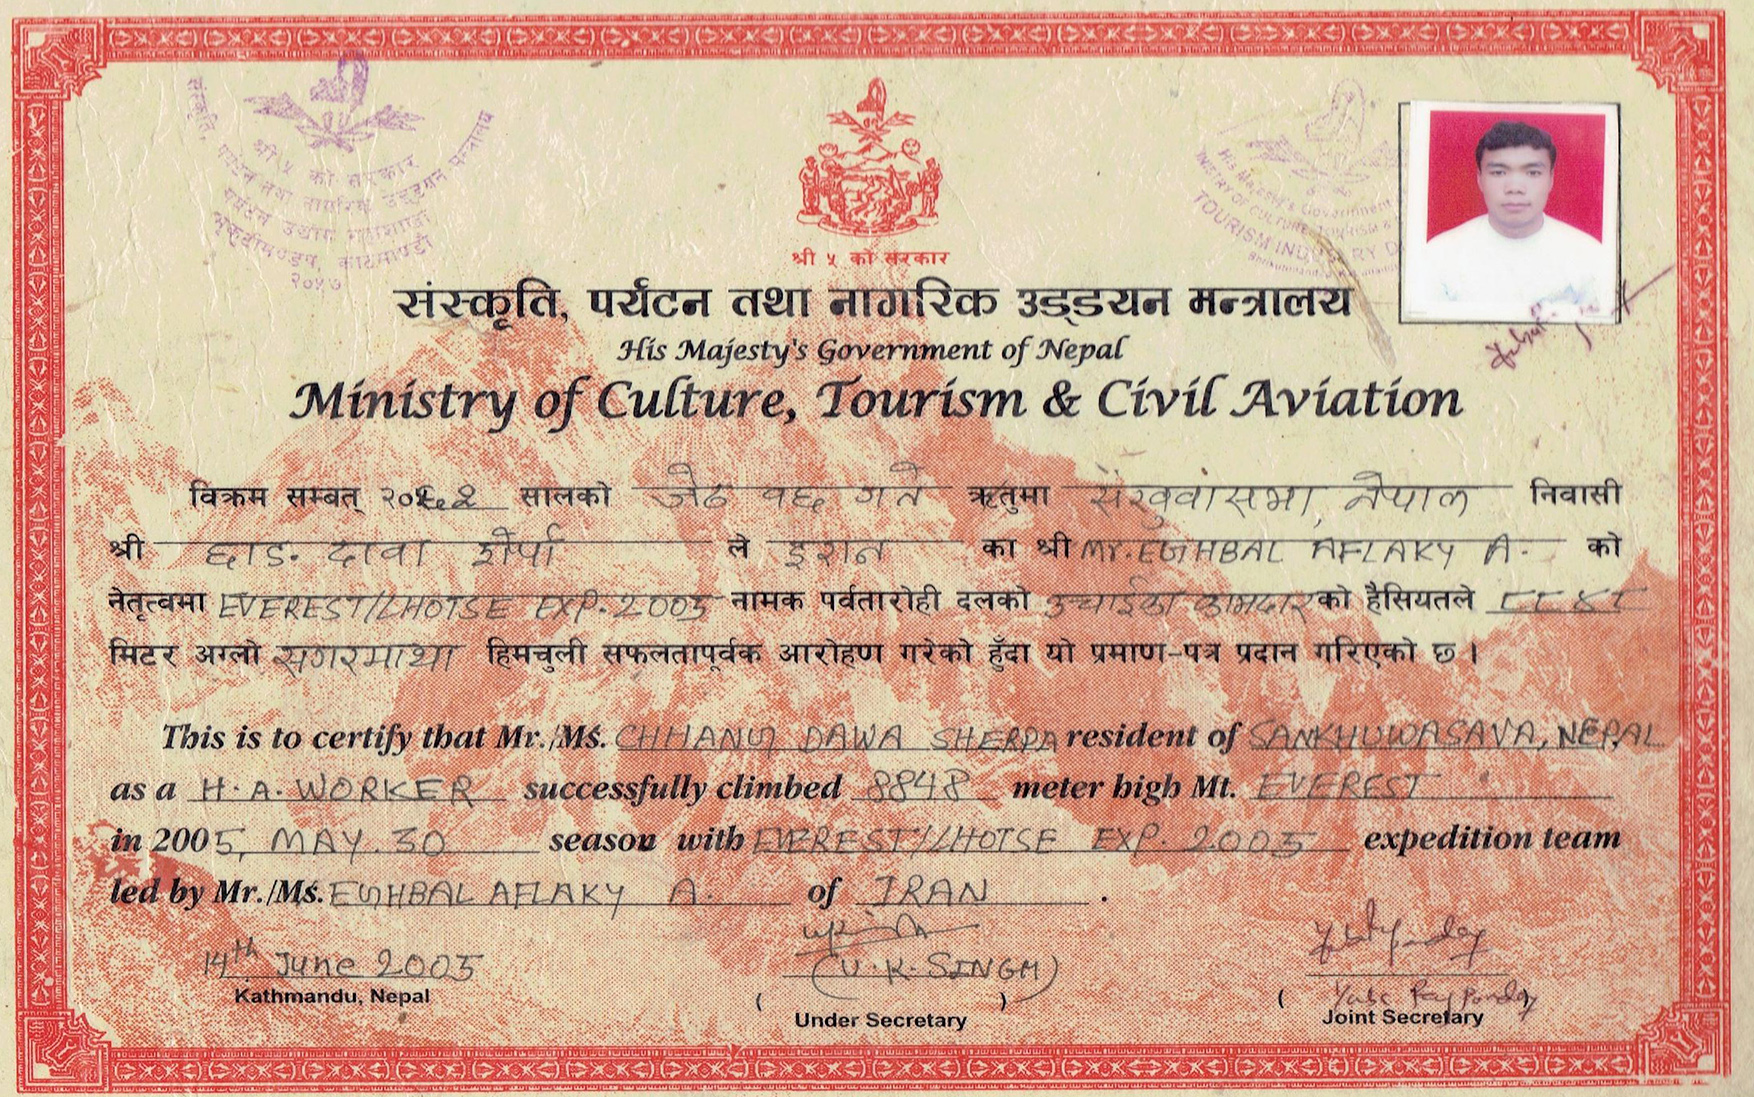 संस्कृति, पर्यटन तथा नागरिक उड्डयन मन्त्रालय
श्री ५ को सरकार
पर्यटन उद्योग महाशाखा
भृकुटीमण्डप, काठमाण्डौ
२०५७
His Majesty's Government
MINISTRY OF CULTURE, TOURISM &
TOURISM INDUSTRY
श्री ५ को सरकार
संस्कृति, पर्यटन तथा नागरिक उड्डयन मन्त्रालय
His Majesty's Government of Nepal
Ministry of Culture, Tourism & Civil Aviation
विक्रम सम्बत् २०६२ सालको जेठ १६ गते ऋतुमा संखुवासभा, नेपाल निवासी
श्री छाङ. दावा शेर्पा ले इरान का श्री Mr. EGHBAL AFLAKY A. को
नेतृत्वमा EVEREST/LHOTSE EXP. 2005 नामक पर्वतारोही दलको उचाईका कामदार को हैसियतले ८८४८
मिटर अग्लो सगरमाथा हिमचुली सफलतापूर्वक आरोहण गरेको हुँदा यो प्रमाण-पत्र प्रदान गरिएको छ ।
This is to certify that Mr./Ms. CHHANG DAWA SHERPA resident of SANKHUWASAVA, NEPAL
as a H.A. WORKER successfully climbed 8848 meter high Mt. EVEREST
in 2005, MAY. 30 season with EVEREST/LHOTSE EXP. 2005 expedition team
led by Mr./Ms. EGHBAL AFLAKY A. of IRAN .
14th June 2005
Kathmandu, Nepal
(U.K. SINGH)
( )
Under Secretary
( )
Joint Secretary